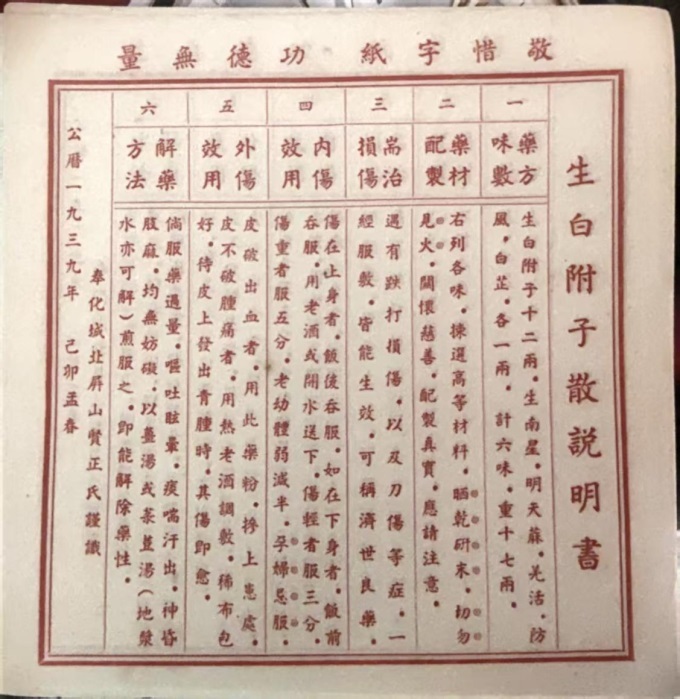 敬惜字紙 功德無量
生白附子散說明書
一
藥方
味數
生白附子十二兩。生南星。明天蔴。羌活。防
風。白芷。各一兩。計六味。重十七兩。
二
藥材
配製
右列各味。揀選高等材料。晒乾研末。切勿
見火。關懷慈善。配製真實。應請注意。
三
耑治
損傷
遇有跌打損傷。以及刀傷等症。一
經服敷。皆能生效。可稱濟世良藥。
四
內傷
效用
傷在上身者。飯後吞服。如在下身者。飯前
吞服。用老酒或開水送下。傷輕者服三分。
傷重者服五分。老幼體弱減半。孕婦忌服。
五
外傷
效用
皮破出血者。用此藥粉。摻上患處。
皮不破腫痛者。用熱老酒調敷。稀布包
好。待皮上發出青腫時。其傷即愈。
六
解藥
方法
倘服藥過量。嘔吐眩暈。痰喘汗出。神昏
肢麻。均無妨礙。以薑湯或菉荳湯(地漿
水亦可解)煎服之。即能解除藥性。
奉化城北屏山贊正氏謹識
公曆一九三九年 己卯孟春